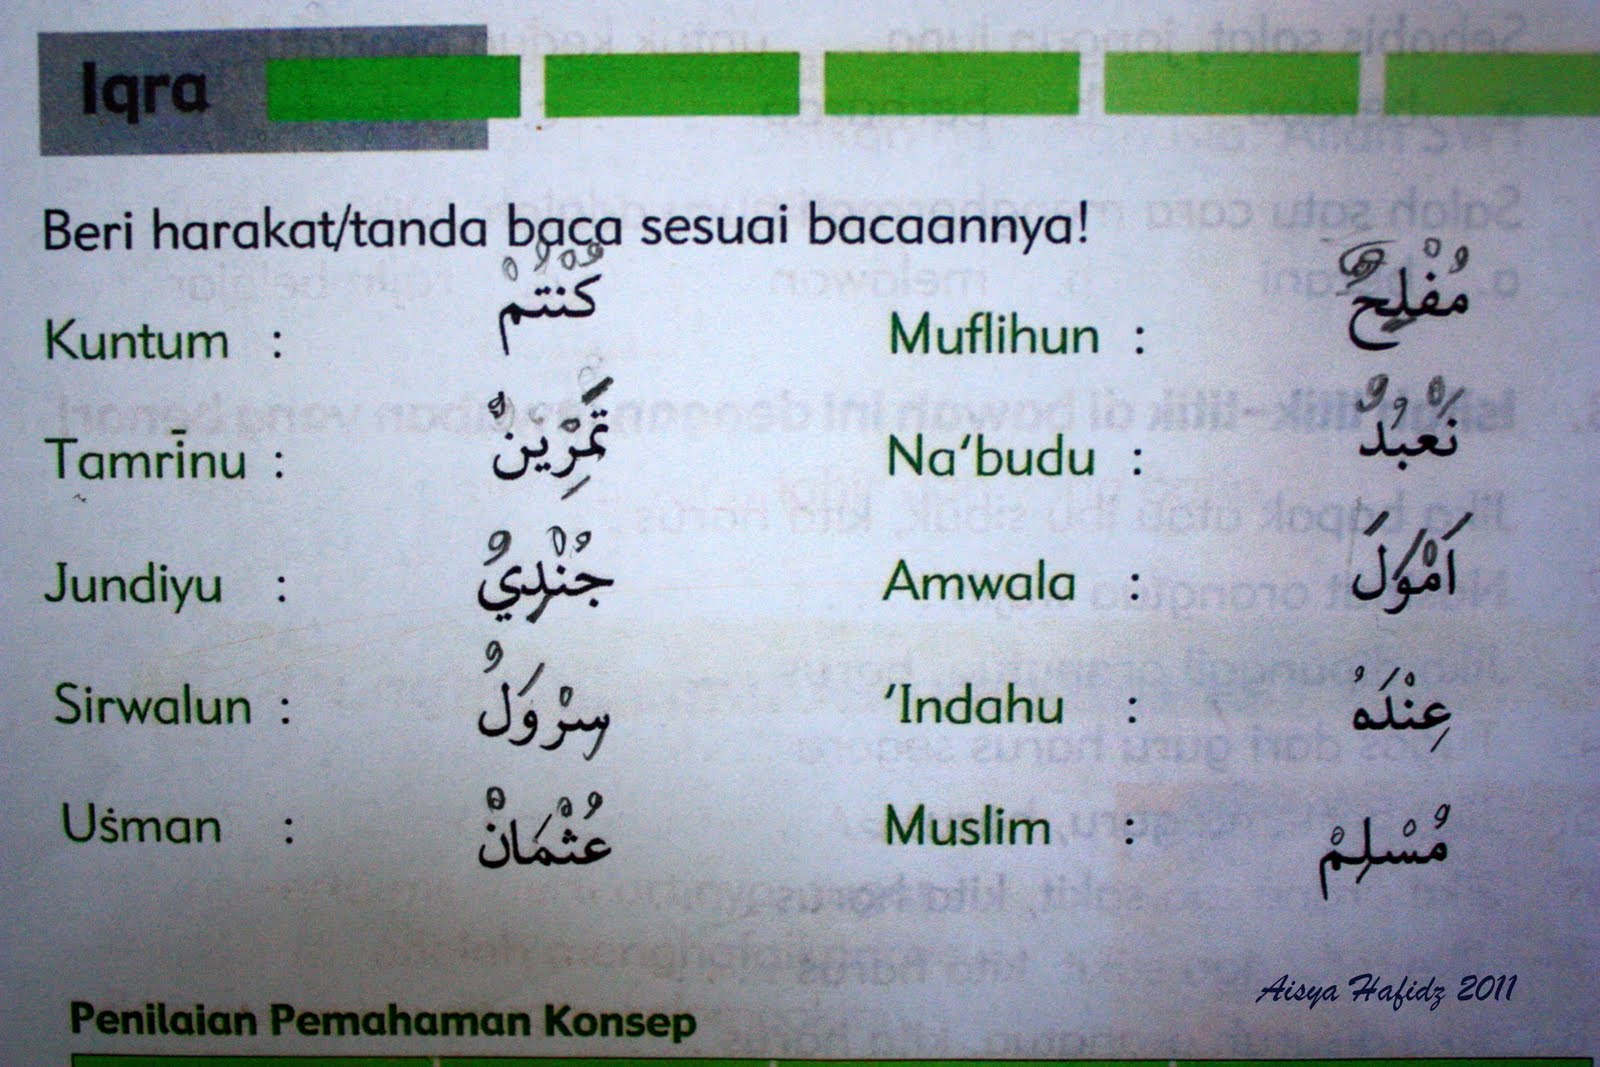 Iqra
Beri harakat/tanda baca sesuai bacaannya!
Kuntum : كُنْتُمْ
Muflihun : مُفْلِحٌ
Tamrīnu : تَمْرِيْنُ
Na'budu : نَعْبُدُ
Jundiyu : جُنْدِيُ
Amwala : اَمْوَلَ
Sirwalun : سِرْوَلُ
'Indahu : عِنْدَهُ
Uṡman : عُثْمَانْ
Muslim : مُسْلِمْ
Aisya Hafidz 2011
Penilaian Pemahaman Konsep